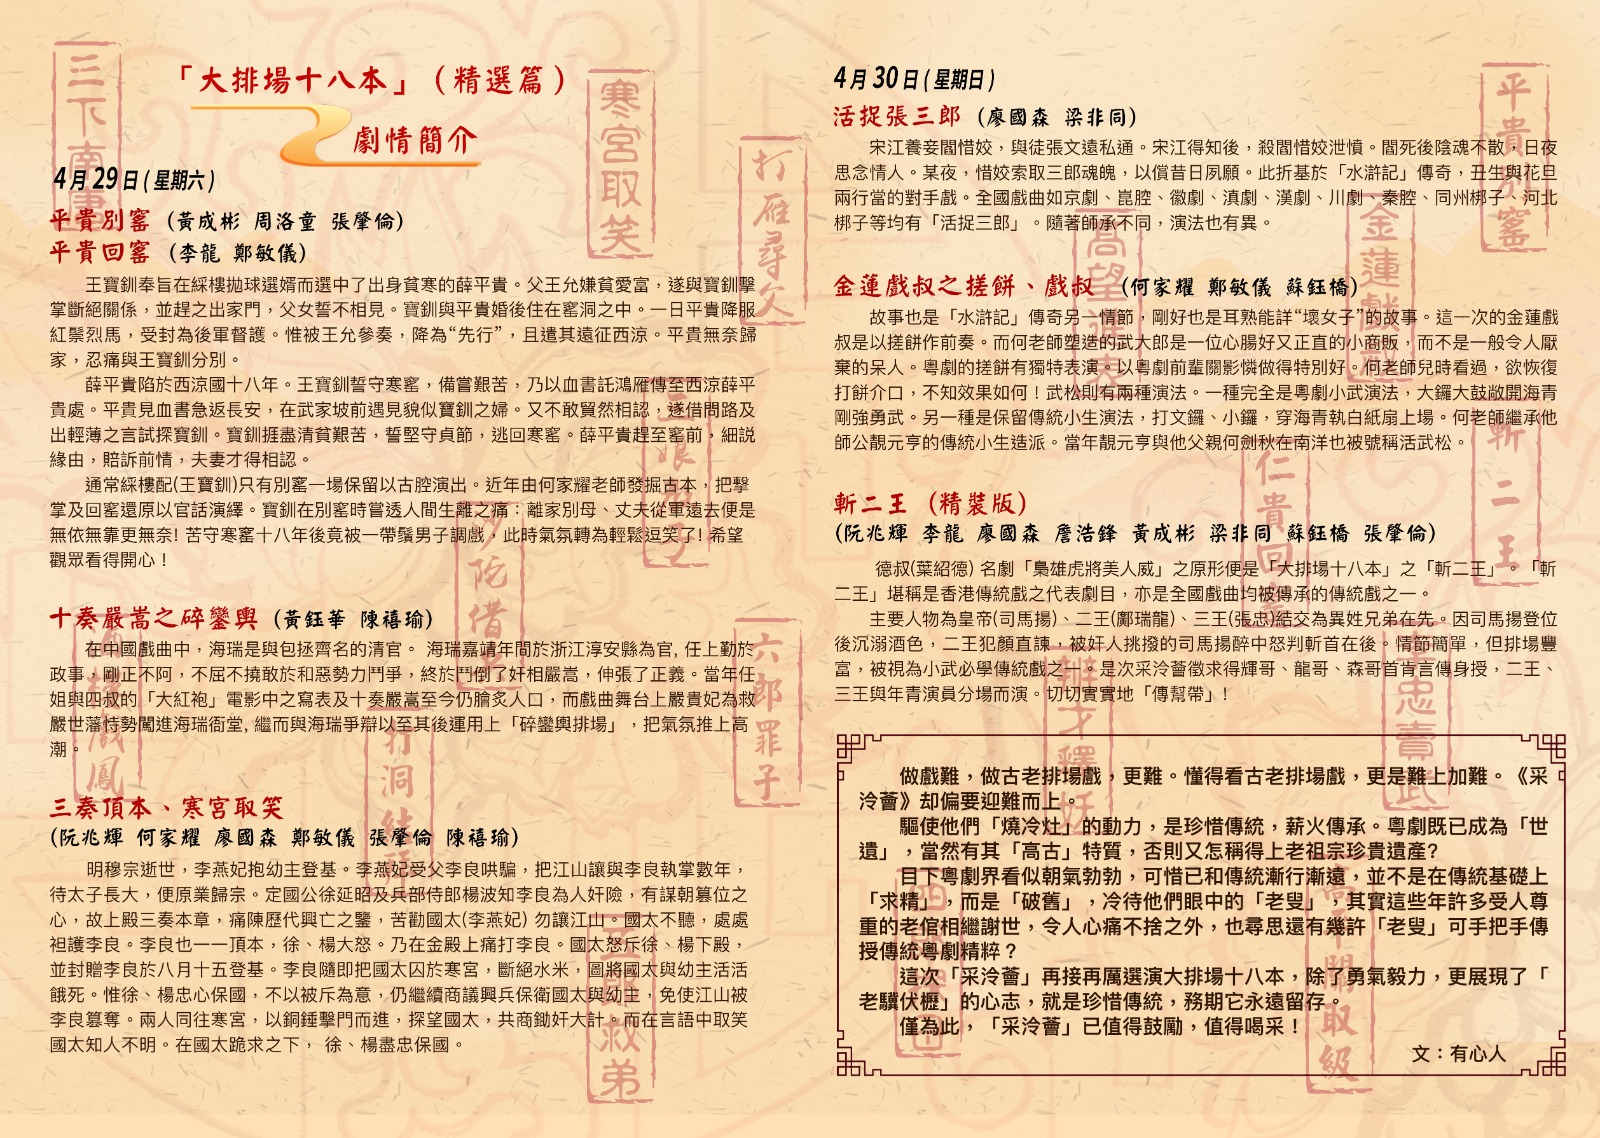 「大排場十八本」（精選篇）
劇情簡介
4月29日(星期六)
平貴別窰 (黃成彬 周洛童 張肇倫)
平貴回窰 (李龍 鄭敏儀)
王寶釧奉旨在綵樓拋球選婿而選中了出身貧寒的薛平貴。父王允嫌貧愛富，遂與寶釧擊
掌斷絕關係，並趕之出家門，父女誓不相見。寶釧與平貴婚後住在窰洞之中。一日平貴降服
紅鬃烈馬，受封為後軍督護。惟被王允參奏，降為“先行”，且遣其遠征西涼。平貴無奈歸
家，忍痛與王寶釧分別。
薛平貴陷於西涼國十八年。王寶釧誓守寒窰，備嘗艱苦，乃以血書託鴻雁傳至西涼薛平
貴處。平貴見血書急返長安，在武家坡前遇見貌似寶釧之婦。又不敢貿然相認，遂借問路及
出輕薄之言試探寶釧。寶釧捱盡清貧艱苦，誓堅守貞節，逃回寒窰。薛平貴趕至窰前，細説
緣由，賠訴前情，夫妻才得相認。
通常綵樓配(王寶釧)只有別窰一場保留以古腔演出。近年由何家耀老師發掘古本，把擊
掌及回窰還原以官話演繹。寶釧在別窰時嘗透人間生離之痛：離家別母、丈夫從軍遠去便是
無依無靠更無奈! 苦守寒窰十八年後竟被一帶鬚男子調戲，此時氣氛轉為輕鬆逗笑了! 希望
觀眾看得開心！
十奏嚴嵩之碎鑾輿 (黃鈺華 陳禧瑜)
在中國戲曲中，海瑞是與包拯齊名的清官。 海瑞嘉靖年間於浙江淳安縣為官, 任上勤於
政事，剛正不阿，不屈不撓敢於和惡勢力鬥爭，終於鬥倒了奸相嚴嵩，伸張了正義。當年任
姐與四叔的「大紅袍」電影中之寫表及十奏嚴嵩至今仍膾炙人口，而戲曲舞台上嚴貴妃為救
嚴世藩恃勢闖進海瑞衙堂, 繼而與海瑞爭辯以至其後運用上「碎鑾輿排場」，把氣氛推上高
潮。
三奏頂本、寒宮取笑
(阮兆輝 何家耀 廖國森 鄭敏儀 張肇倫 陳禧瑜)
明穆宗逝世，李燕妃抱幼主登基。李燕妃受父李良哄騙，把江山讓與李良執掌數年，
待太子長大，便原業歸宗。定國公徐延昭及兵部侍郎楊波知李良為人奸險，有謀朝篡位之
心，故上殿三奏本章，痛陳歷代興亡之鑒，苦勸國太(李燕妃) 勿讓江山。國太不聽，處處
袒護李良。李良也一一頂本，徐、楊大怒。乃在金殿上痛打李良。國太怒斥徐、楊下殿，
並封贈李良於八月十五登基。李良隨即把國太囚於寒宮，斷絕水米，圖將國太與幼主活活
餓死。惟徐、楊忠心保國，不以被斥為意，仍繼續商議興兵保衛國太與幼主，免使江山被
李良篡奪。兩人同往寒宮，以銅錘擊門而進，探望國太，共商鋤奸大計。而在言語中取笑
國太知人不明。在國太跪求之下， 徐、楊盡忠保國。
4月30日(星期日)
活捉張三郎 (廖國森 梁非同)
宋江養妾閻惜姣，與徒張文遠私通。宋江得知後，殺閻惜姣泄憤。閻死後陰魂不散，日夜
思念情人。某夜，惜姣索取三郎魂魄，以償昔日夙願。此折基於「水滸記」傳奇，丑生與花旦
兩行當的對手戲。全國戲曲如京劇、崑腔、徽劇、滇劇、漢劇、川劇、秦腔、同州梆子、河北
梆子等均有「活捉三郎」。隨著師承不同，演法也有異。
金蓮戲叔之搓餅、戲叔 (何家耀 鄭敏儀 蘇鈺橋)
故事也是「水滸記」傳奇另一情節，剛好也是耳熟能詳“壞女子”的故事。這一次的金蓮戲
叔是以搓餅作前奏。而何老師塑造的武大郎是一位心腸好又正直的小商販，而不是一般令人厭
棄的呆人。粵劇的搓餅有獨特表演。以粵劇前輩關影憐做得特別好。何老師兒時看過，欲恢復
打餅介口，不知效果如何！武松則有兩種演法。一種完全是粵劇小武演法，大鑼大鼓敞開海青
剛強勇武。另一種是保留傳統小生演法，打文鑼、小鑼，穿海青執白紙扇上場。何老師繼承他
師公靚元亨的傳統小生造派。當年靚元亨與他父親何劍秋在南洋也被號稱活武松。
斬二王 (精裝版)
(阮兆輝 李龍 廖國森 詹浩鋒 黃成彬 梁非同 蘇鈺橋 張肇倫)
德叔(葉紹德) 名劇「梟雄虎將美人威」之原形便是「大排場十八本」之「斬二王」。「斬
二王」堪稱是香港傳統戲之代表劇目，亦是全國戲曲均被傳承的傳統戲之一。
主要人物為皇帝(司馬揚)、二王(鄺瑞龍)、三王(張忠)結交為異姓兄弟在先。因司馬揚登位
後沉溺酒色，二王犯顏直諫，被奸人挑撥的司馬揚醉中怒判斬首在後。情節簡單，但排場豐
富，被視為小武必學傳統戲之一。是次采泠薈徵求得輝哥、龍哥、森哥首肯言傳身授，二王、
三王與年青演員分場而演。切切實實地「傳幫帶」!
做戲難，做古老排場戲，更難。懂得看古老排場戲，更是難上加難。《采
泠薈》却偏要迎難而上。
驅使他們「燒冷灶」的動力，是珍惜傳統，薪火傳承。粵劇既已成為「世
遺」，當然有其「高古」特質，否則又怎稱得上老祖宗珍貴遺產?
目下粵劇界看似朝氣勃勃，可惜已和傳統漸行漸遠，並不是在傳統基礎上
「求精」，而是「破舊」，冷待他們眼中的「老叟」，其實這些年許多受人尊
重的老倌相繼謝世，令人心痛不捨之外，也尋思還有幾許「老叟」可手把手傳
授傳統粵劇精粹？
這次「采泠薈」再接再厲選演大排場十八本，除了勇氣毅力，更展現了「
老驥伏櫪」的心志，就是珍惜傳統，務期它永遠留存。
僅為此，「采泠薈」已值得鼓勵，值得喝采！
文：有心人
三下南唐
寒宮取笑
打雁尋父
平貴別窰
金蓮戲叔
高望進表
斬二王
仁貴回窰
沙陀借兵
六郎罪子
打洞結拜
五郎救弟